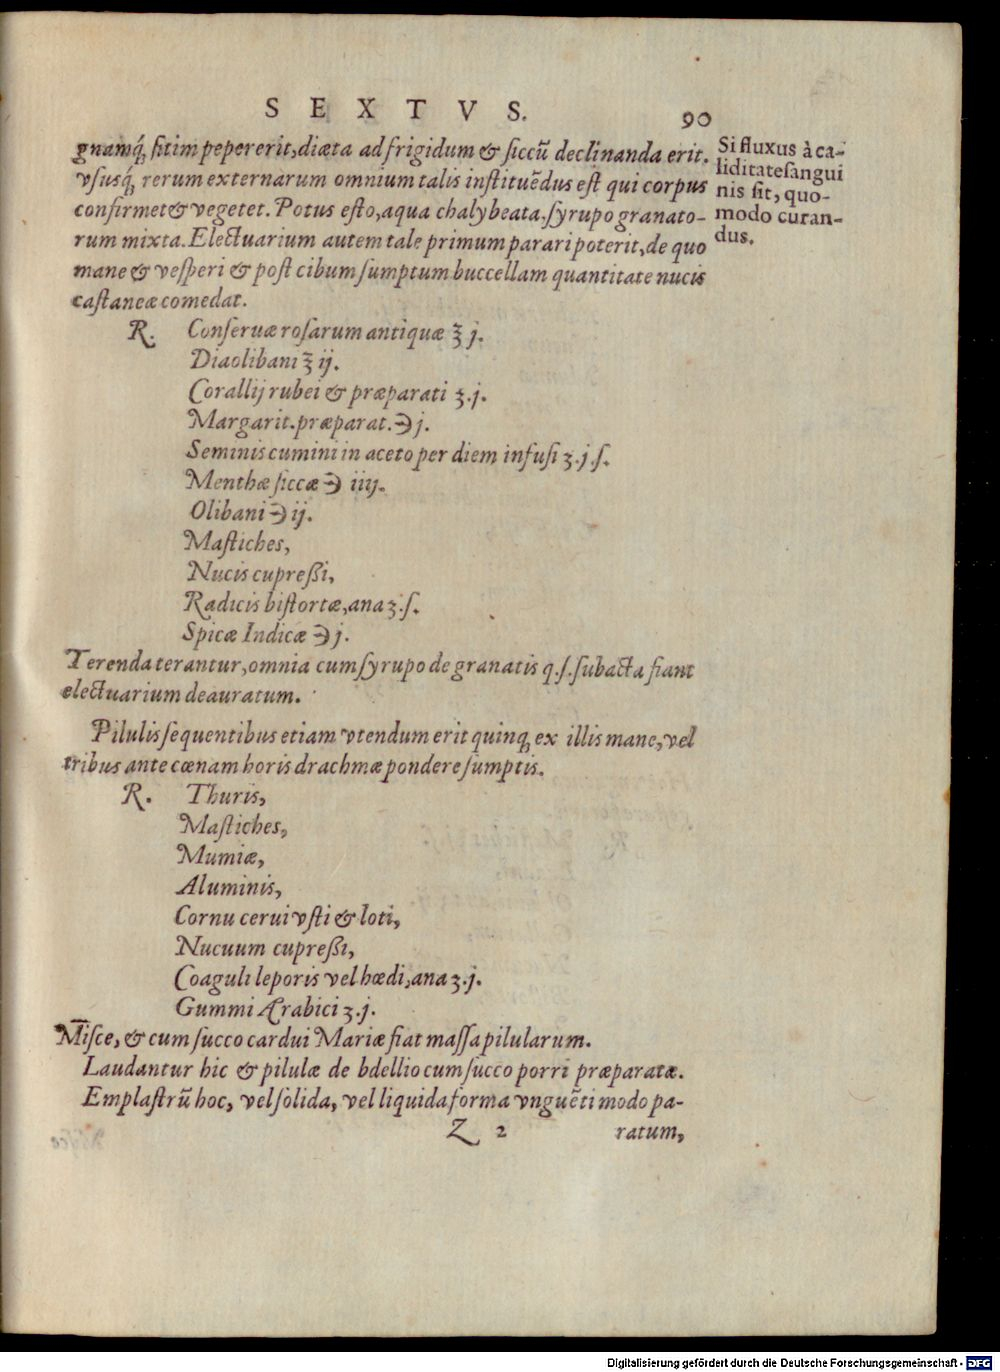 SEXTVS. 90
gnamq́; sitim pepererit, diæta ad frigidum & siccũ declinanda erit.
vsusq́; rerum externarum omnium talis instituẽdus est qui corpus
confirmet & vegetet. Potus esto, aqua chalybeata, syrupo granato-
rum mixta. Electuarium autem tale primum parari poterit, de quo
mane & vesperi & post cibum sumptum buccellam quantitate nucis
castaneæ comedat.
Si fluxus à ca-
liditate sangui
nis sit, quo-
modo curan-
dus.
R. Conseruæ rosarum antiquæ ℥ j.
Diaolibani ℥ ij.
Corallij rubei & præparati ʒ. j.
Margarit. præparat. ℈ j.
Seminis cumini in aceto per diem infusi ʒ. j. ſ.
Menthæ siccæ ℈ iiij.
Olibani ℈ ij.
Mastiches,
Nucis cupreßi,
Radicis bistortæ, ana ʒ. ſ.
Spicæ Indicæ ℈ j.
Terenda terantur, omnia cum syrupo de granatis q. s. subacta fiant
electuarium deauratum.
Pilulis sequentibus etiam vtendum erit quinq; ex illis mane, vel
tribus ante cœnam horis drachmæ pondere sumptis.
R. Thuris,
Mastiches,
Mumiæ,
Aluminis,
Cornu cerui vsti & loti,
Nucuum cupreßi,
Coaguli leporis vel hœdi, ana ʒ. j.
Gummi Arabici ʒ. j.
Misce, & cum succo cardui Mariæ fiat massa pilularum.
Laudantur hic & pilulæ de bdellio cum succo porri præparatæ.
Emplastrũ hoc, vel solida, vel liquida forma vnguẽti modo pa-
Z 2 ratum,
Digitalisierung gefördert durch die Deutsche Forschungsgemeinschaft - DFG